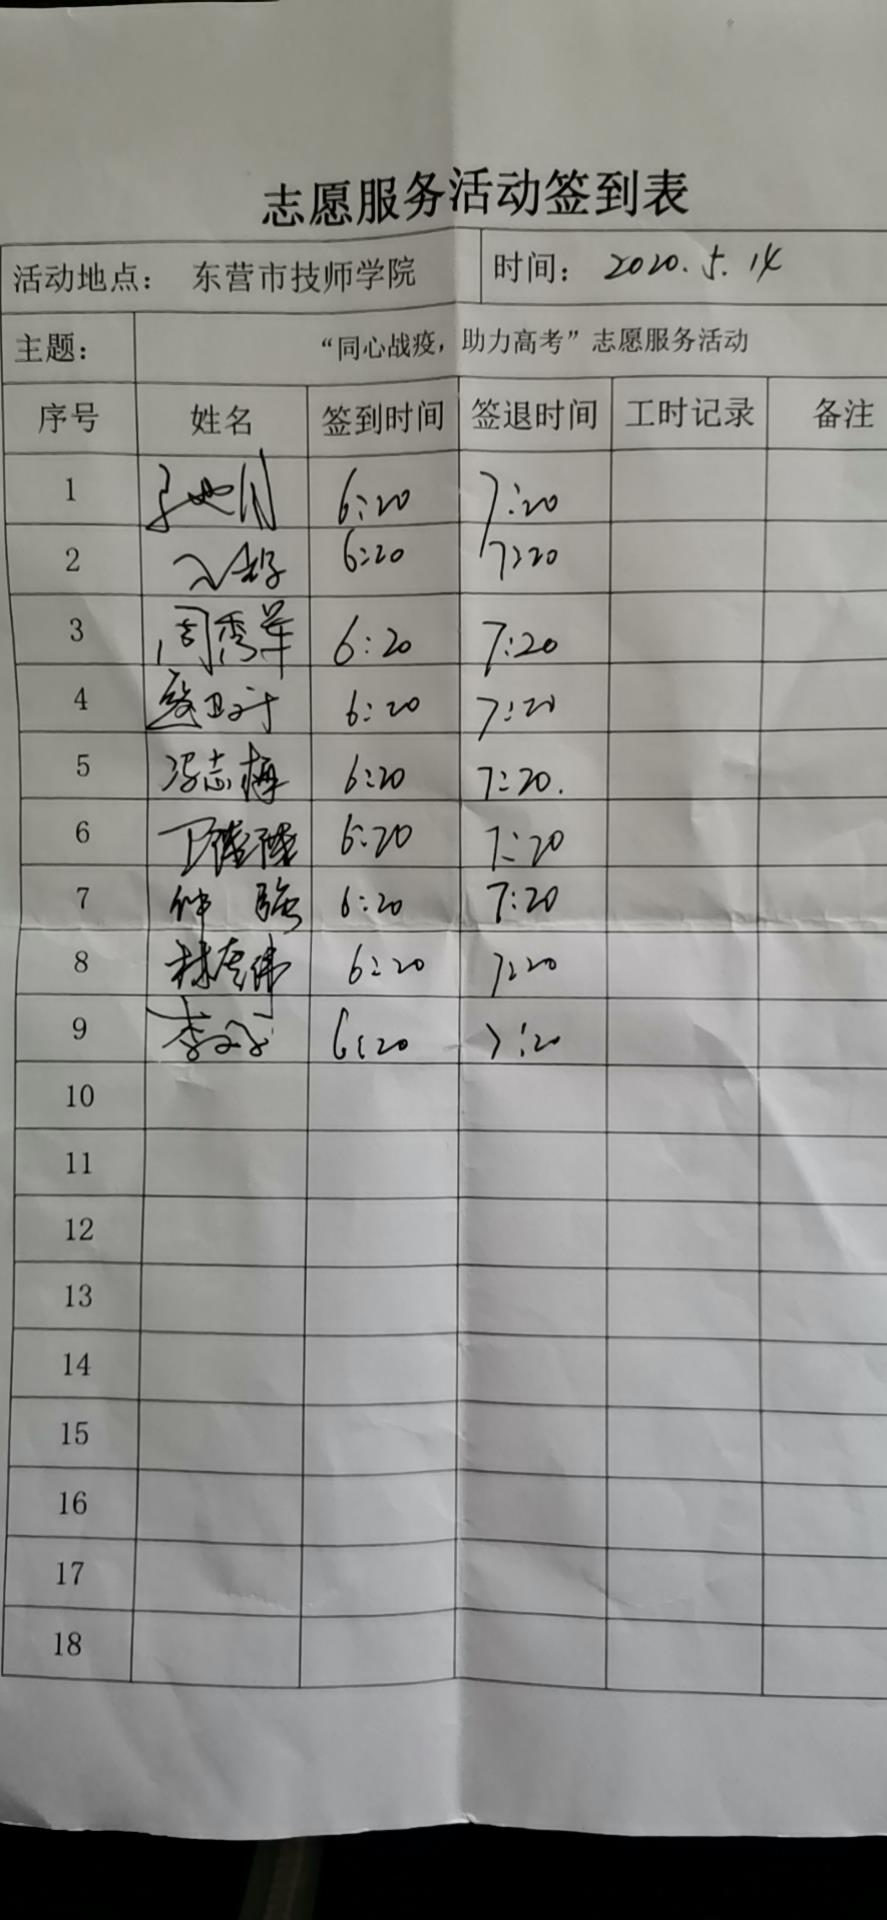 志愿服务活动签到表
活动地点： 东营市技师学院 时间： 2020.5.14
主题： “同心战疫，助力高考”志愿服务活动
序号 姓名 签到时间 签退时间 工时记录 备注
1 6:20 7:20
2 6:20 7:20
3 周秀萍 6:20 7:20
4 6:20 7:20
5 冯志梅 6:20 7:20.
6 6:20 7:20
7 仲强 6:20 7:20
8 林奎伟 6:20 7:20
9 李 6:20 7:20
10
11
12
13
14
15
16
17
18